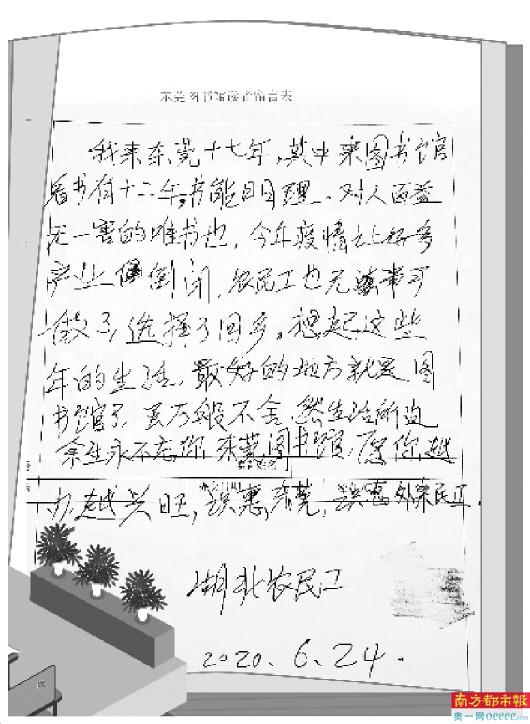 东莞图书馆读者留言表
我来东莞十七年，其中来图书馆
看书有十二年，书能明理、对人百益
无一害的唯书也，今年疫情让好多
产业倒闭，农民工也无事可
做了，选择了回乡，想起这些
年的生活，最好的地方就是图
书馆了，虽万般不舍，然生活所迫
余生永不忘你，东莞图书馆，愿你越
办越兴旺，识惠东莞，识惠外来民工．
湖北农民工
2020．6．24．
南方都市报
奥一网oeeee.com